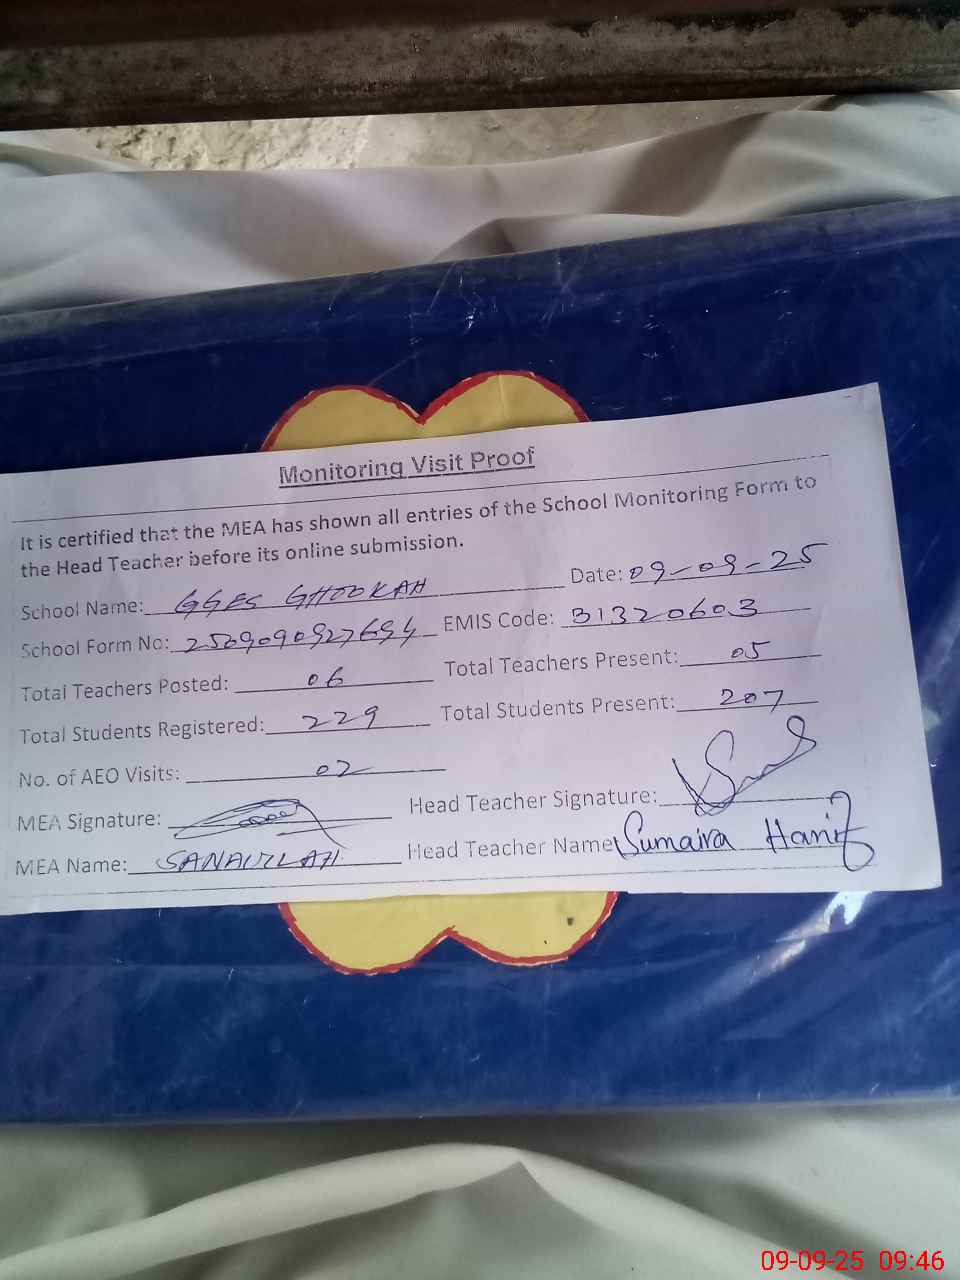 Monitoring Visit Proof
It is certified that the MEA has shown all entries of the School Monitoring Form to
the Head Teacher before its online submission.
School Name: GGES GHOOKAH Date: 09-09-25
School Form No: 2509090927694 EMIS Code: 31320603
Total Teachers Posted: 06 Total Teachers Present: 05
Total Students Registered: 229 Total Students Present: 207
No. of AEO Visits: 02
MEA Signature: Head Teacher Signature:
MEA Name: SANAULLAH Head Teacher Name Sumaira Hanif
09-09-25 09:46